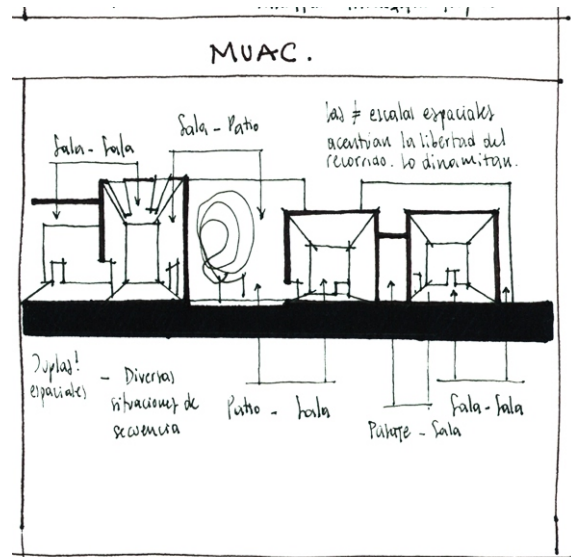 MUAC.
Sala - Sala
Sala - Patio
Las ≠ escalas espaciales
acentúan la libertad del
recorrido. Lo dinamitan.
Duplas!
espaciales
- Diversas
situaciones de
secuencia
Patio - Sala
Pasaje - Sala
Sala - Sala